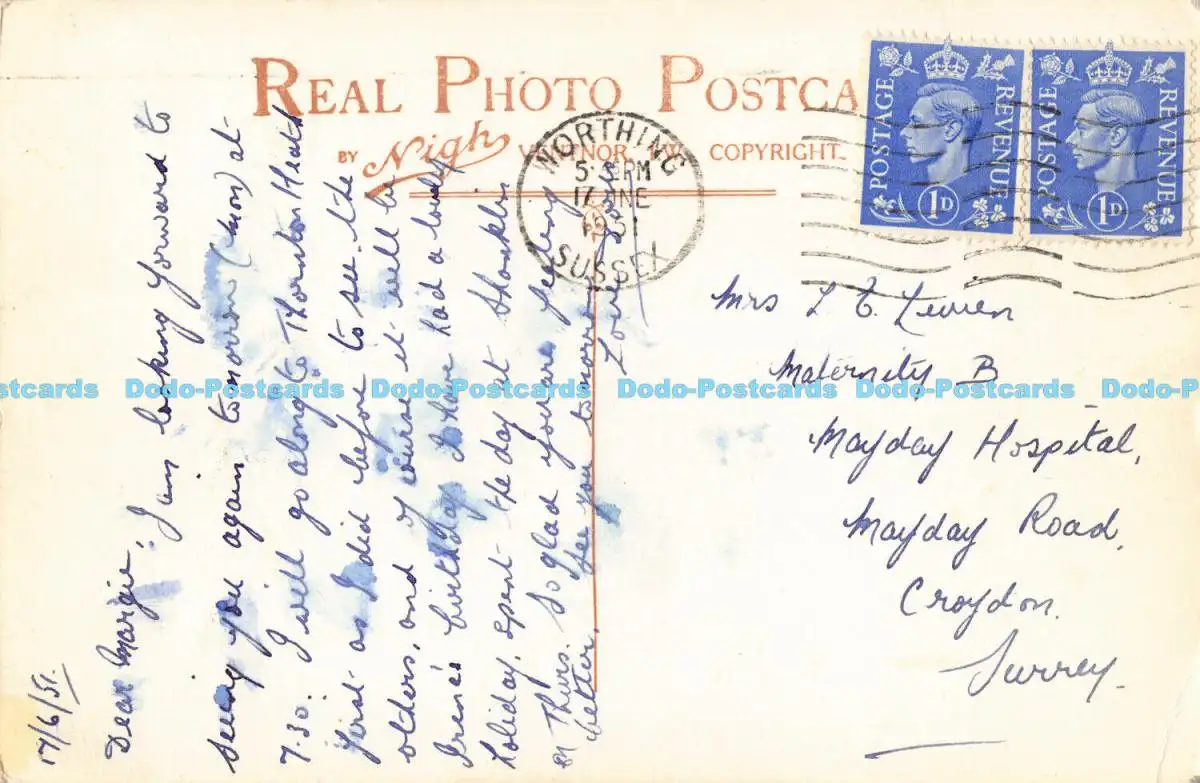 REAL PHOTO POSTCA
BY Nigh VENTNOR, I.W. COPYRIGHT.
WORTHING
PM
17 JNE
SUSSEX
POSTAGE REVENUE
1D
POSTAGE REVENUE
1D
17/6/51.
Dear Margie,
I am looking forward to
seeing you again tomorrow (mon) at
7-30. I will go along to Thornton Heath
first as I did before to see the
others, and of course it will be
Irene's birthday. I have had a lovely
holiday, spent the day at Shanklin
on Thurs. So glad you are feeling
better. See you tomorrow
Love
Mrs L E
Maternity B
Mayday Hospital,
Mayday Road,
Croydon.
Surrey.
Dodo-Postcards Dodo-Postcards Dodo-Postcards Dodo-Postcards Dodo-Postcards